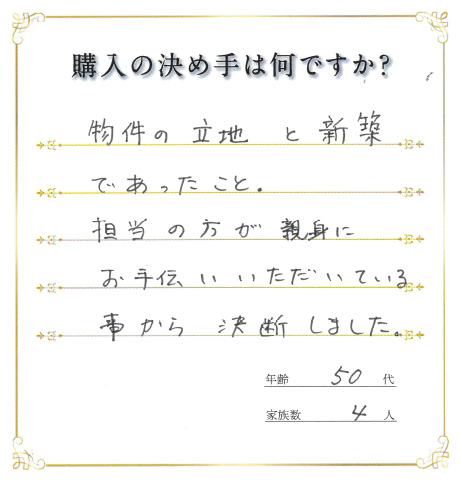 購入の決め手は何ですか?
物件の立地と新築
であったこと。
担当の方が親身に
お手伝いいただいている
事から決断しました。
年齢 50 代
家族数 4 人